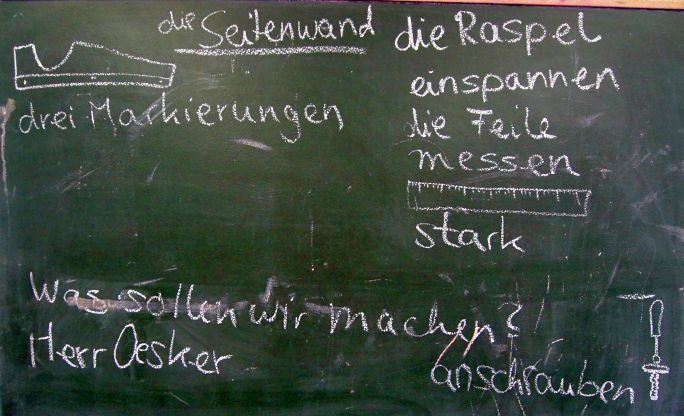 die Seitenwand
drei Markierungen
die Raspel
einspannen
die Feile
messen
stark
Was sollen wir machen?
Herr Oesker
anschrauben